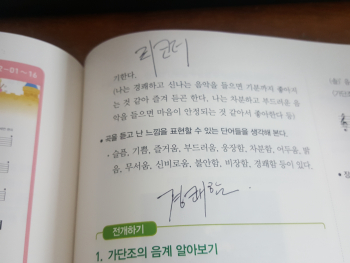 2-01~16
리코더
기한다.
(나는 경쾌하고 신나는 음악을 들으면 기분까지 좋아지
는 것 같아 즐겨 듣곤 한다. 나는 차분하고 부드러운 음
악을 들으면 마음이 안정되는 것 같아서 좋아한다 등)
• 곡을 듣고 난 느낌을 표현할 수 있는 단어들을 생각해 본다.
- 슬픔, 기쁨, 즐거움, 부드러움, 웅장함, 차분함, 어두움, 밝
음, 무서움, 신비로움, 불안함, 비장함, 경쾌함 등이 있다.
경쾌함
전개하기
1. 가단조의 음계 알아보기